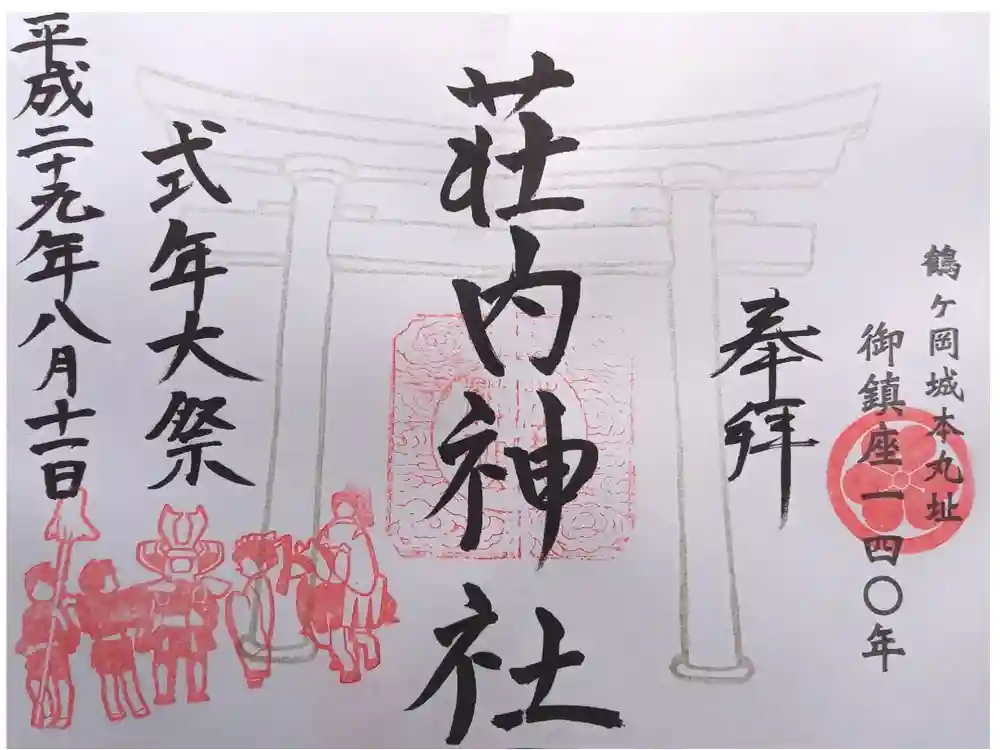 鶴ヶ岡城本丸址
御鎮座一四〇年
奉拝
荘内神社
式年大祭
平成二十九年八月十一日